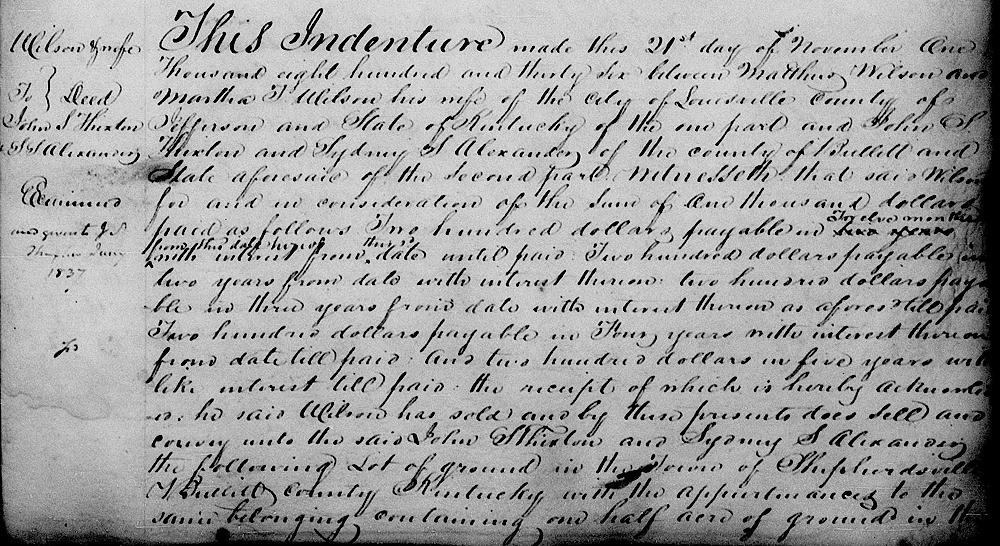 Wilson & wife
To } Deed
John S Thixton
& S S Alexander
Examined
and
1837
This Indenture made this 21st day of November One
Thousand eight hundred and thirty six between Matthew Wilson and
Martha T Wilson his wife of the city of Louisville County of
Jefferson and State of Kentucky of the one part and John S
Thixton and Sydney S Alexander of the county of Bullitt and
State aforesaid of the second part. Witnesseth that said Wilson
for and in consideration of the sum of One thousand dollars
paid as follows Two hundred dollars payable in two years Twelve months
from this date hereof with interest from this date until paid: Two hundred dollars payable in
two years from date with interest thereon: two hundred dollars pay-
ble in three years from date with interest thereon as afores till paid
Two hundred dollars payable in Four years with interest thereon
from date till paid: And two hundred dollars in five years with
like interest till paid: the receipt of which is hereby acknowled
he said Wilson has sold and by these presents does sell and
convey unto the said John S Thixton and Sydney S Alexander
the following Lot of ground in the Town of Shepherdsville
Bullitt County Kentucky with the appurtenances to the
same belonging containing one half acre of ground in